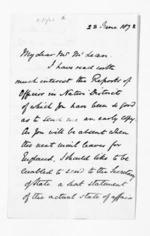 23 June 1872
My dear Mr McLean
I have read with
much interest the Reports of
Officers in Native District
of which you have been so good
as to send me an early copy.
As you will be absent when
the next mail leaves for
England, I should like to be
enabled to send to the Secretary
of State a short statement
of the actual state of affairs